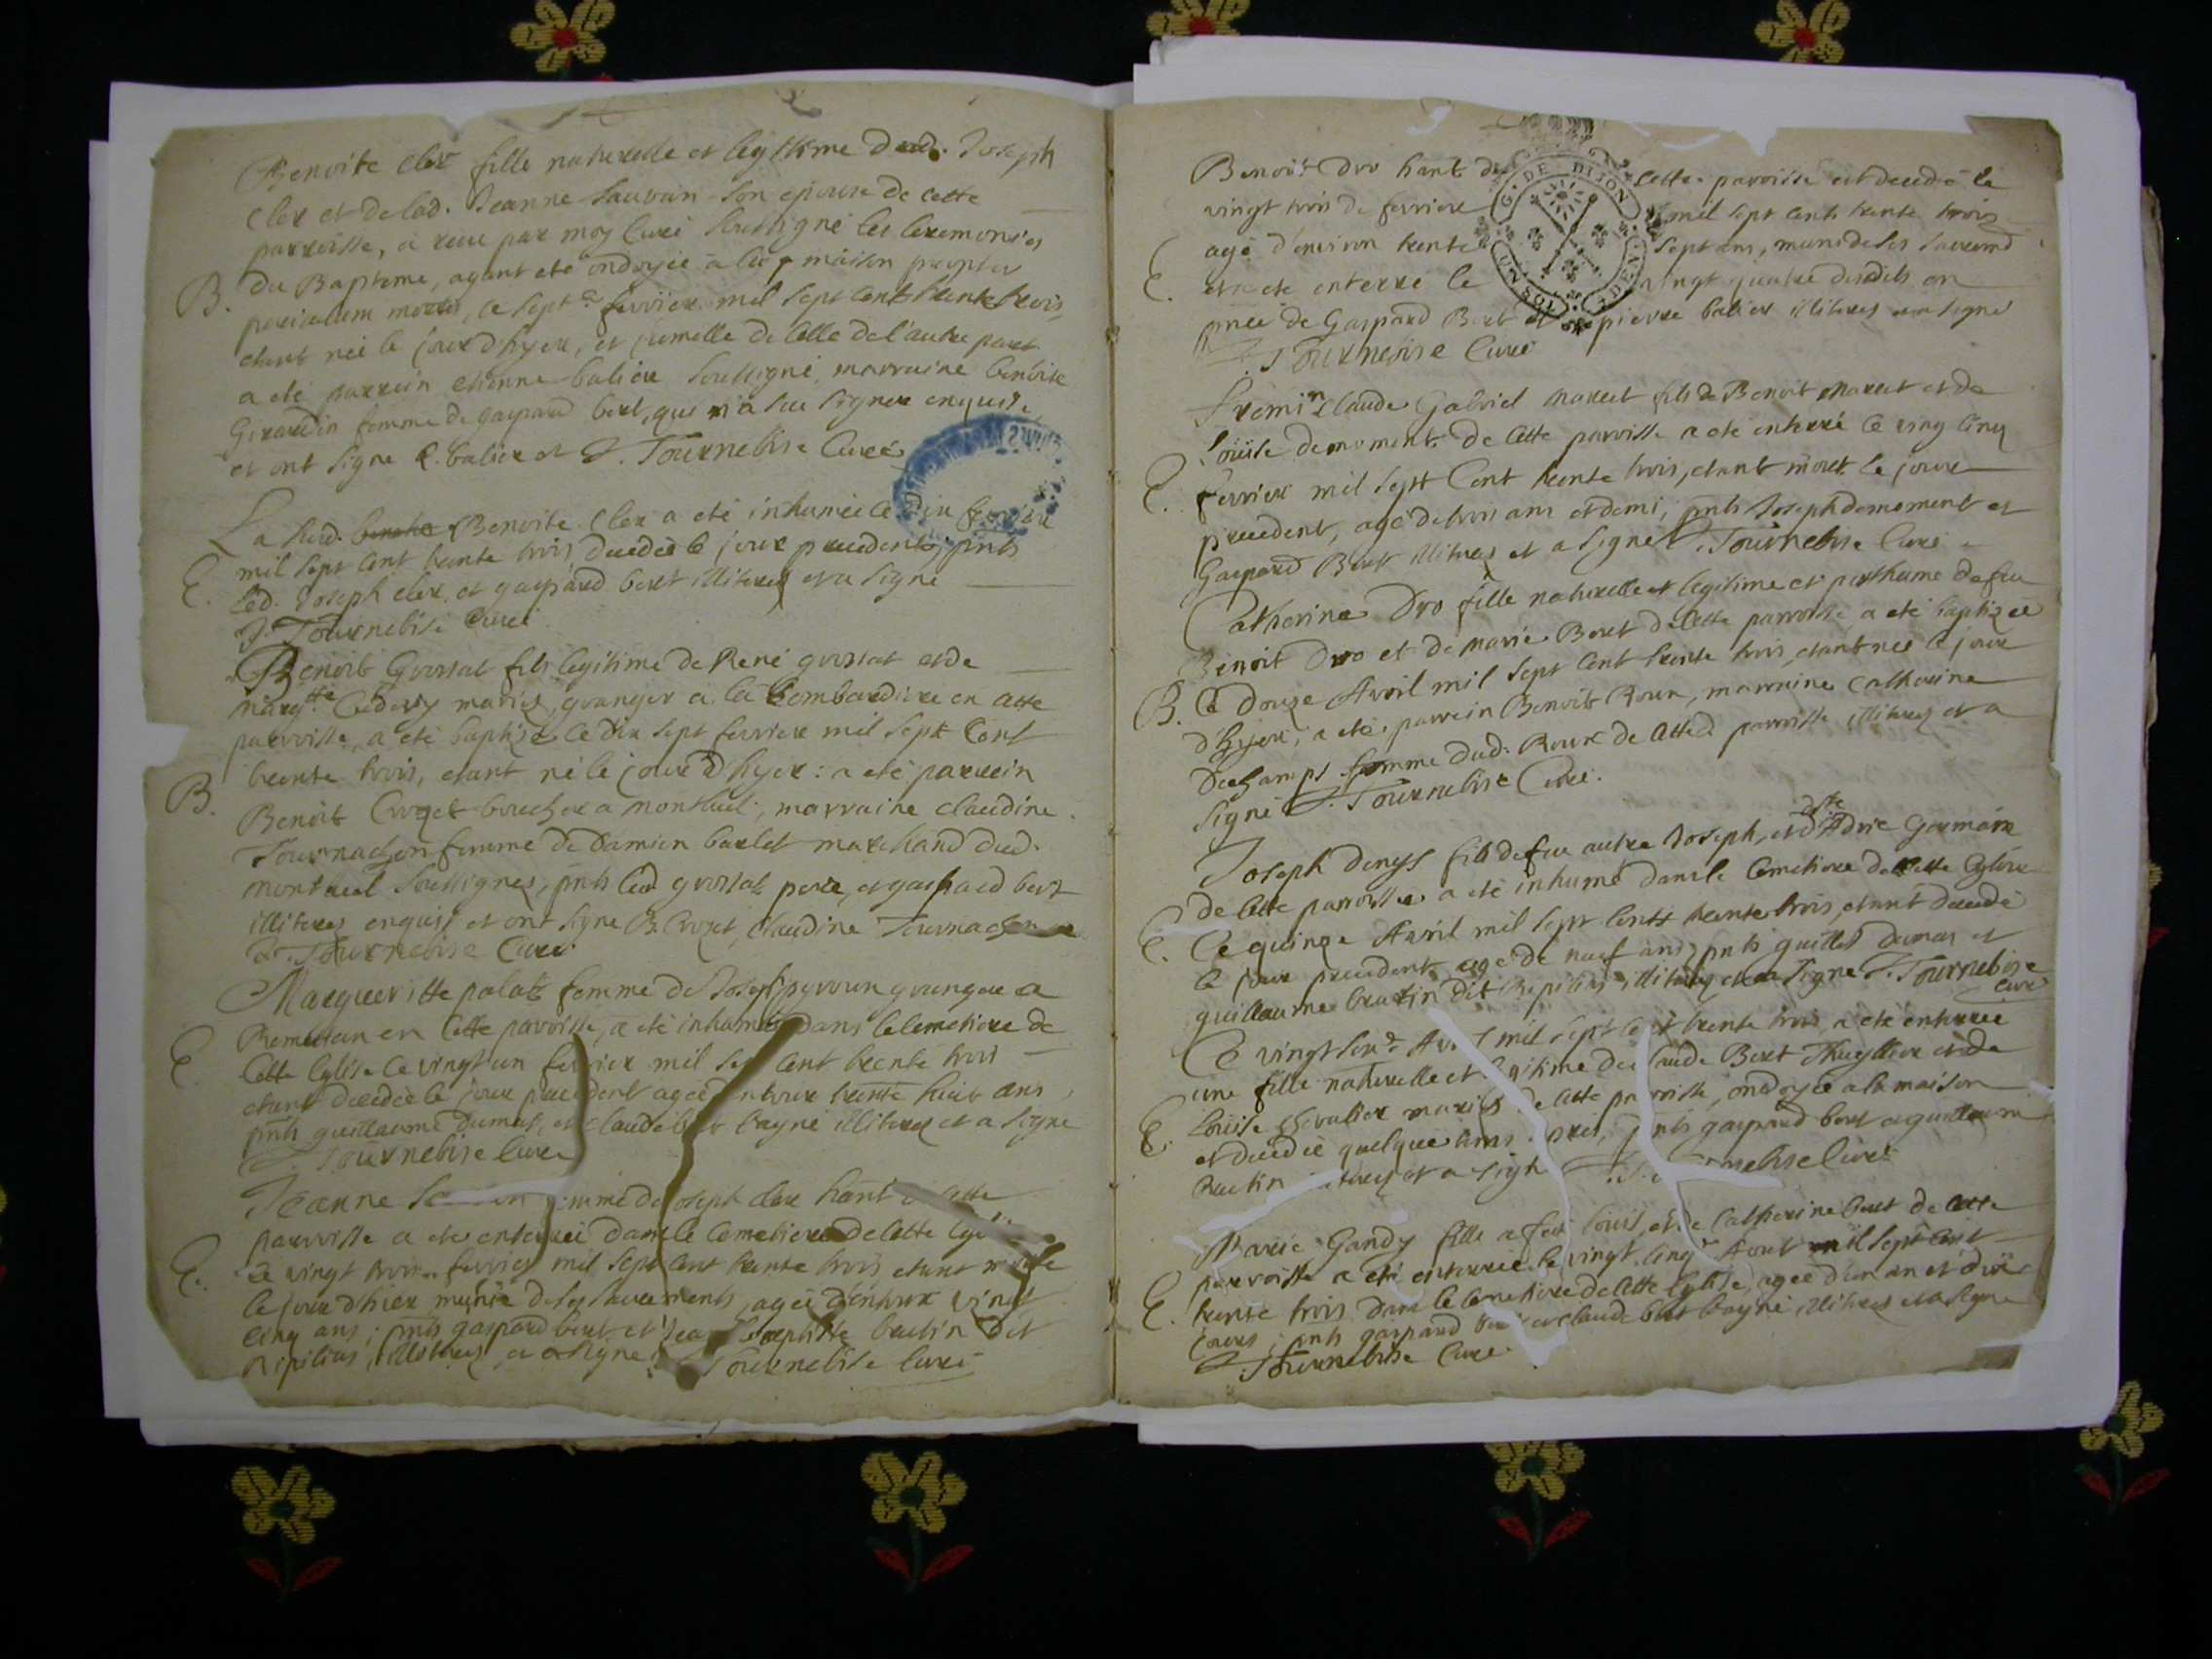 Benoite Cler fille naturelle et legitime dud. Joseph
Cler et de lad. Jeanne Sauvan son epouse de cette
parroisse, a receu par moy Curé soussigné les ceremonies
B. du Bapteme, ayant eté ondoyée a la maison propter
periculum mortis, le sept février mil sept cent trente trois,
etant née le jour d'hyer, et jumelle de celle de l'autre part
a eté parrein etienne balier soussigné, marraine benoite
Girardin femme de gaspard bert, qui n'a sceu signer enquise,
et ont signé E. balier et J. Tournebise Curé
La susd. Benoite Cler a eté inhumée le
mil sept cent trente trois decedée le jour precedent, pnts
E. led. Joseph cler, et gaspard bert illiteres et a signé
J. Tournebise Curé
Benoit Grossat fils legitime de René grossat et de
marg.tte mariés, granger a la Bombardiere en cette
parroisse, a eté baptizé le dix sept fevrier mil sept Cent
B. trente trois, etant né le jour d'hyer : a eté parrein
Benoit Crozet boucher a montluel, marraine claudine
Tournachon femme de Damien barlet marchand dud.
montluel soussignés, pnts led grossat pere, et gaspard bert
illiteres enquis et ont signé B. Crozet, Claudine Tournachon
J. Tournebise Curé
Margueritte palat femme de Joseph granger a
en cette parroisse, a eté inhumée dans le cemetiere de
E. cette Eglise le vingt un fevrier mil sept cent trente trois
etant decedée le jour precedent agée d'environ trente huit ans
pnts guillaume dumas, et claude bert bayne illiteres et a signé
J. Tournebise Curé
Jeanne femme de Joseph cler hant de cette
parroisse a eté enterrée dans le cemetiere de cette Eglise
E. le vingt trois fevrier mil sept cent trente trois etant morte
le jour d'hier munie de ses sacrements, agée d'environ vingt
cinq ans ; pnts gaspard bert et Jean Baptiste bratin dit
ripilius, illiteres, et a signé J. Tournebise Curé
G. DE DIJON
Benoit Dro hant de cette parroisse est decedé le
vingt trois de fevrier mil sept cent trente trois
agé d'environ trente sept ans, muni de ses sacremts
E. et a eté enterré le vingt quatre desdits en
pnce de Gaspard Bert et pierre balier illiteres et a signé
J. Tournebise Curé
Fremin Claude Gabriel Marret fils de Benoit Marret et de
Louise demoment de cette parroisse a eté enterré le ving cinq
E. Fevrier mil sept Cent trente trois, etant mort le jour
precedent, agé de trois ans et demi, pnts Joseph demoment et
Gaspard Bert illiteres et a signé J. Tournebise Curé
Catherine Dro fille naturelle et legitime et posthume de feu
Benoit Dro et de marie Bert de cette parroisse a eté baptizée
B. le douze Avril mil sept cent trente trois, etant née le jour
d'hyer, a eté parrein Benoit Roux, marraine Catherine
Dechamps femme dud. Roux de cetted parroisse illiteres et a
signé J. Tournebise Curé.
Joseph Denys fils de feu autre Joseph, et d'Adrie Germain
de cette parroisse a eté inhumé dans le Cemetiere de cette Eglise
E. le quinze Avril mil sept cents trente trois, etant decedé
le jour precedent agé de neuf ans, pnts guillet dumas et
guillaume bratin dit ripilius illiteres et a signé J. Tournebise
Curé
Le vingt Avril mil sept cent trente trois, a eté enterrée
une fille naturelle et legitime de Claude Bert Thuyllier et de
E. Louise Chevalier mariés de cette parroisse, ondoyée a la maison
et decedée quelque tems apres, pnts gaspard bert et guillaume
Bratin illiteres et a signé J. Tournebise Curé
Marie Gandy fille a feu Louis, et de Catherine bert de cette
parroisse a eté enterrée le vingt cinq Avril mil sept cent
E. trente trois dans le cemetiere de cette Eglise, agée d'un an et dix
jours ; pnts gaspard bert et claude bert bayne, illiteres et a signé
J. Tournebise Curé